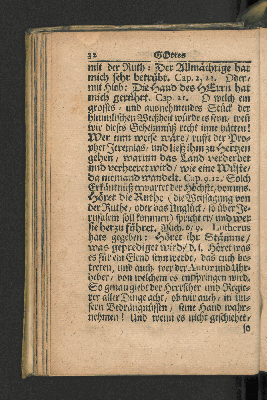 32 GOttes
mit der Ruth: Der Allmächtige hat
mich sehr betrübt. Cap. 2, 21. Oder
mit Hiob: Die Hand des HErrn hat
mich gerühret. Cap. 21. O welch ein
grosses/ und ausnehmendes Stück der
himmlischen Weißheit würde es seyn/ wen
wir dieses Geheimnüß recht inne hätten!
Wer nun weise wäre/ rufft der Pro-
phet Jeremias/ und ließ ihm zu Hertzen
gehen/ warumb das Land verderbet
und verheeret wird/ wie eine Wüste/
da niemand wandelt. Cap. 9, 12. Solch
Erkäntnüß erwartet der Höchste von uns.
Höret die Ruthe (die Weissagung von
der Ruthe/ oder das Unglück/ so über Je-
rusalem soll kommen) spricht er/ und wer
sie her zu führet. Mich. 6, 9. Lutherus
hats gegeben: Höret ihr Stämme/
was geprediget wird/ d.i. Höret was
es für ein Elend seyn werde/ das euch be-
treten/ und auch/ wer der Autor und Uhr-
heber/ von welchem es entsprungen wird.
So genau giebt der Herrscher und Regie-
rer aller Dinge acht/ ob wir auch/ in un-
sern Bedrängnüssen/ seine Hand wahr-
nehmen! Und wenn es nicht geschiehet/
so